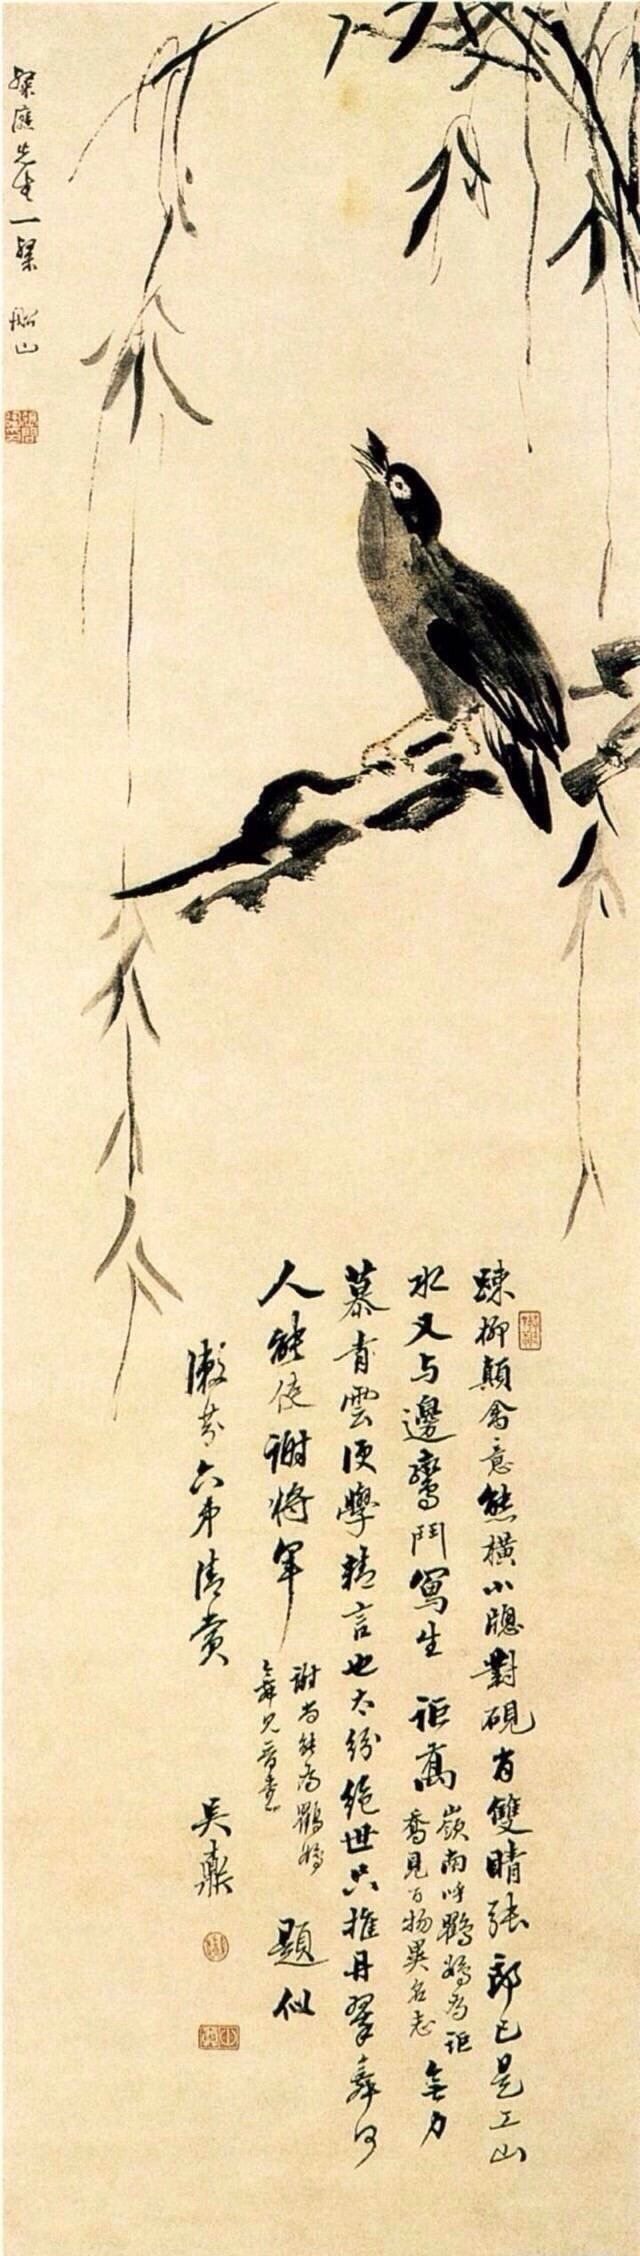 先生一粲 船山
疎柳顛禽意態橫小牕對硯有雙晴張郎已是工山
水又与邊鸞鬥寫生 詎喬
嶺南呼鸜鵒為詎
喬見百物異名志
無力
慕青雲便學精言也太紛絕世只推丹翠舞何
人能使謝將軍
謝尚能為鸜鵒
舞見晉書
題似
漱芬六弟清賞 吳鼒